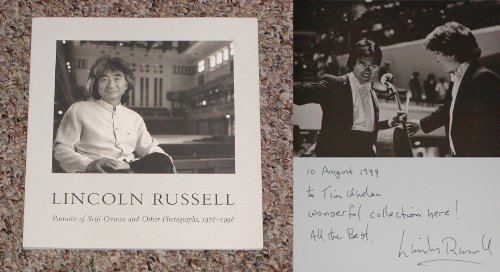 LINCOLN RUSSELL
Portraits of Seiji Ozawa and Other Photographs, 1978–1998
10 August 1999
to Tim Whelan
Wonderful collection here!
All the Best.
Lincoln Russell